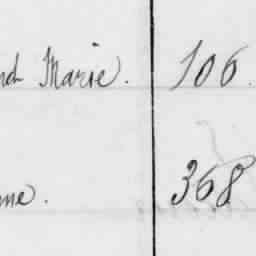 nd Marie. 106.
me. 368